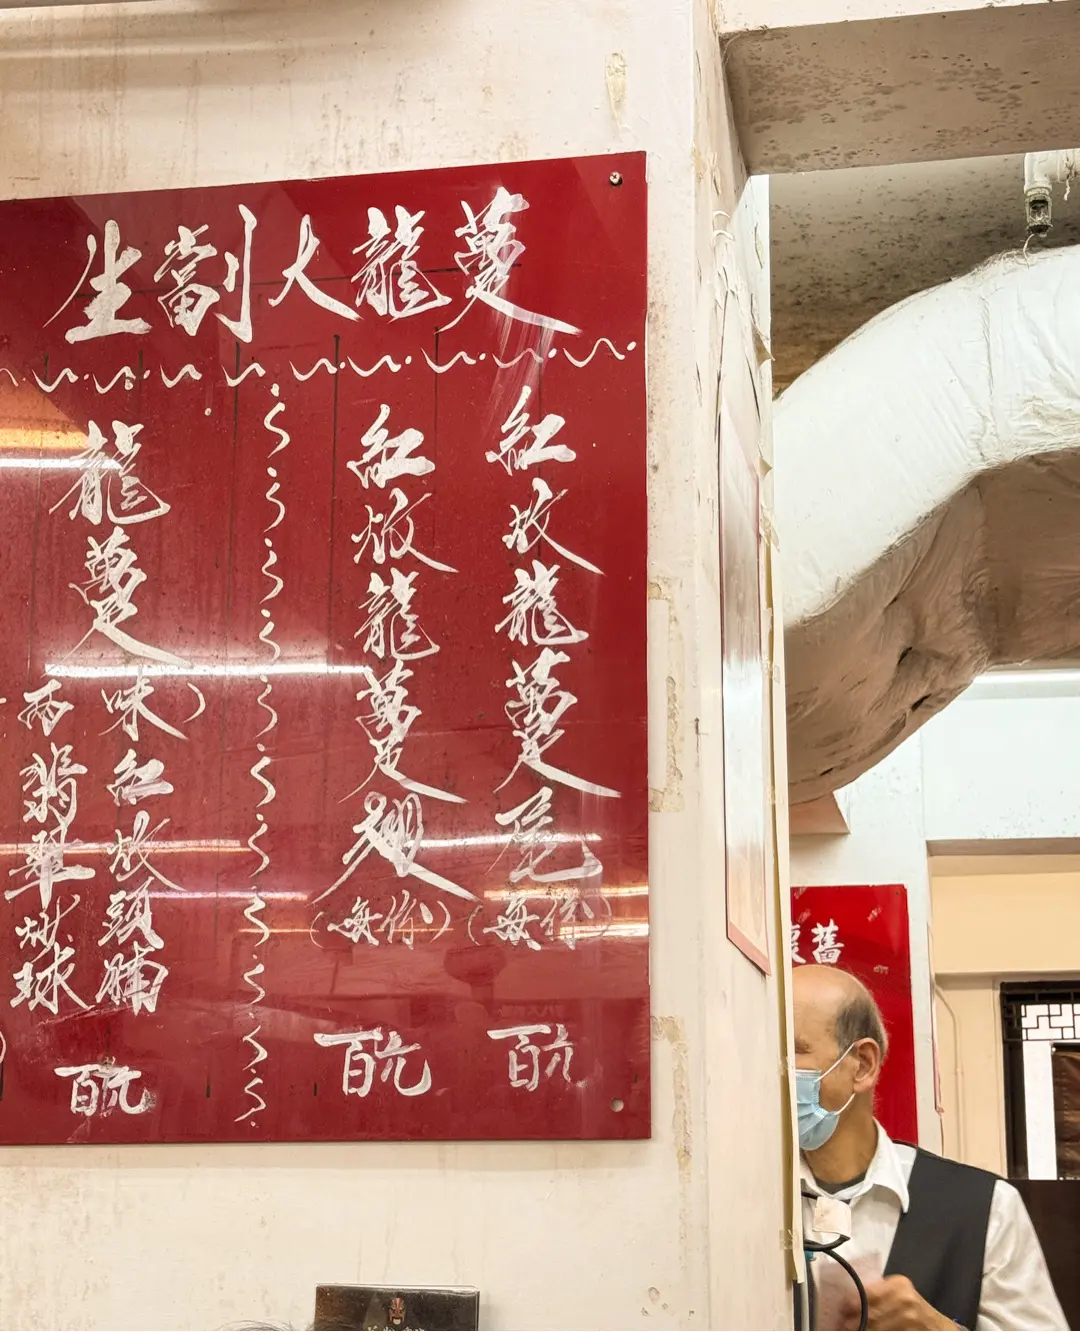 生劏大龍躉
紅炆龍躉尾
（每份）
百元
紅炆龍躉翅
（每份）
百元
龍躉
兩味）
紅炆頭腩
翡翠炒球
百元
懷舊